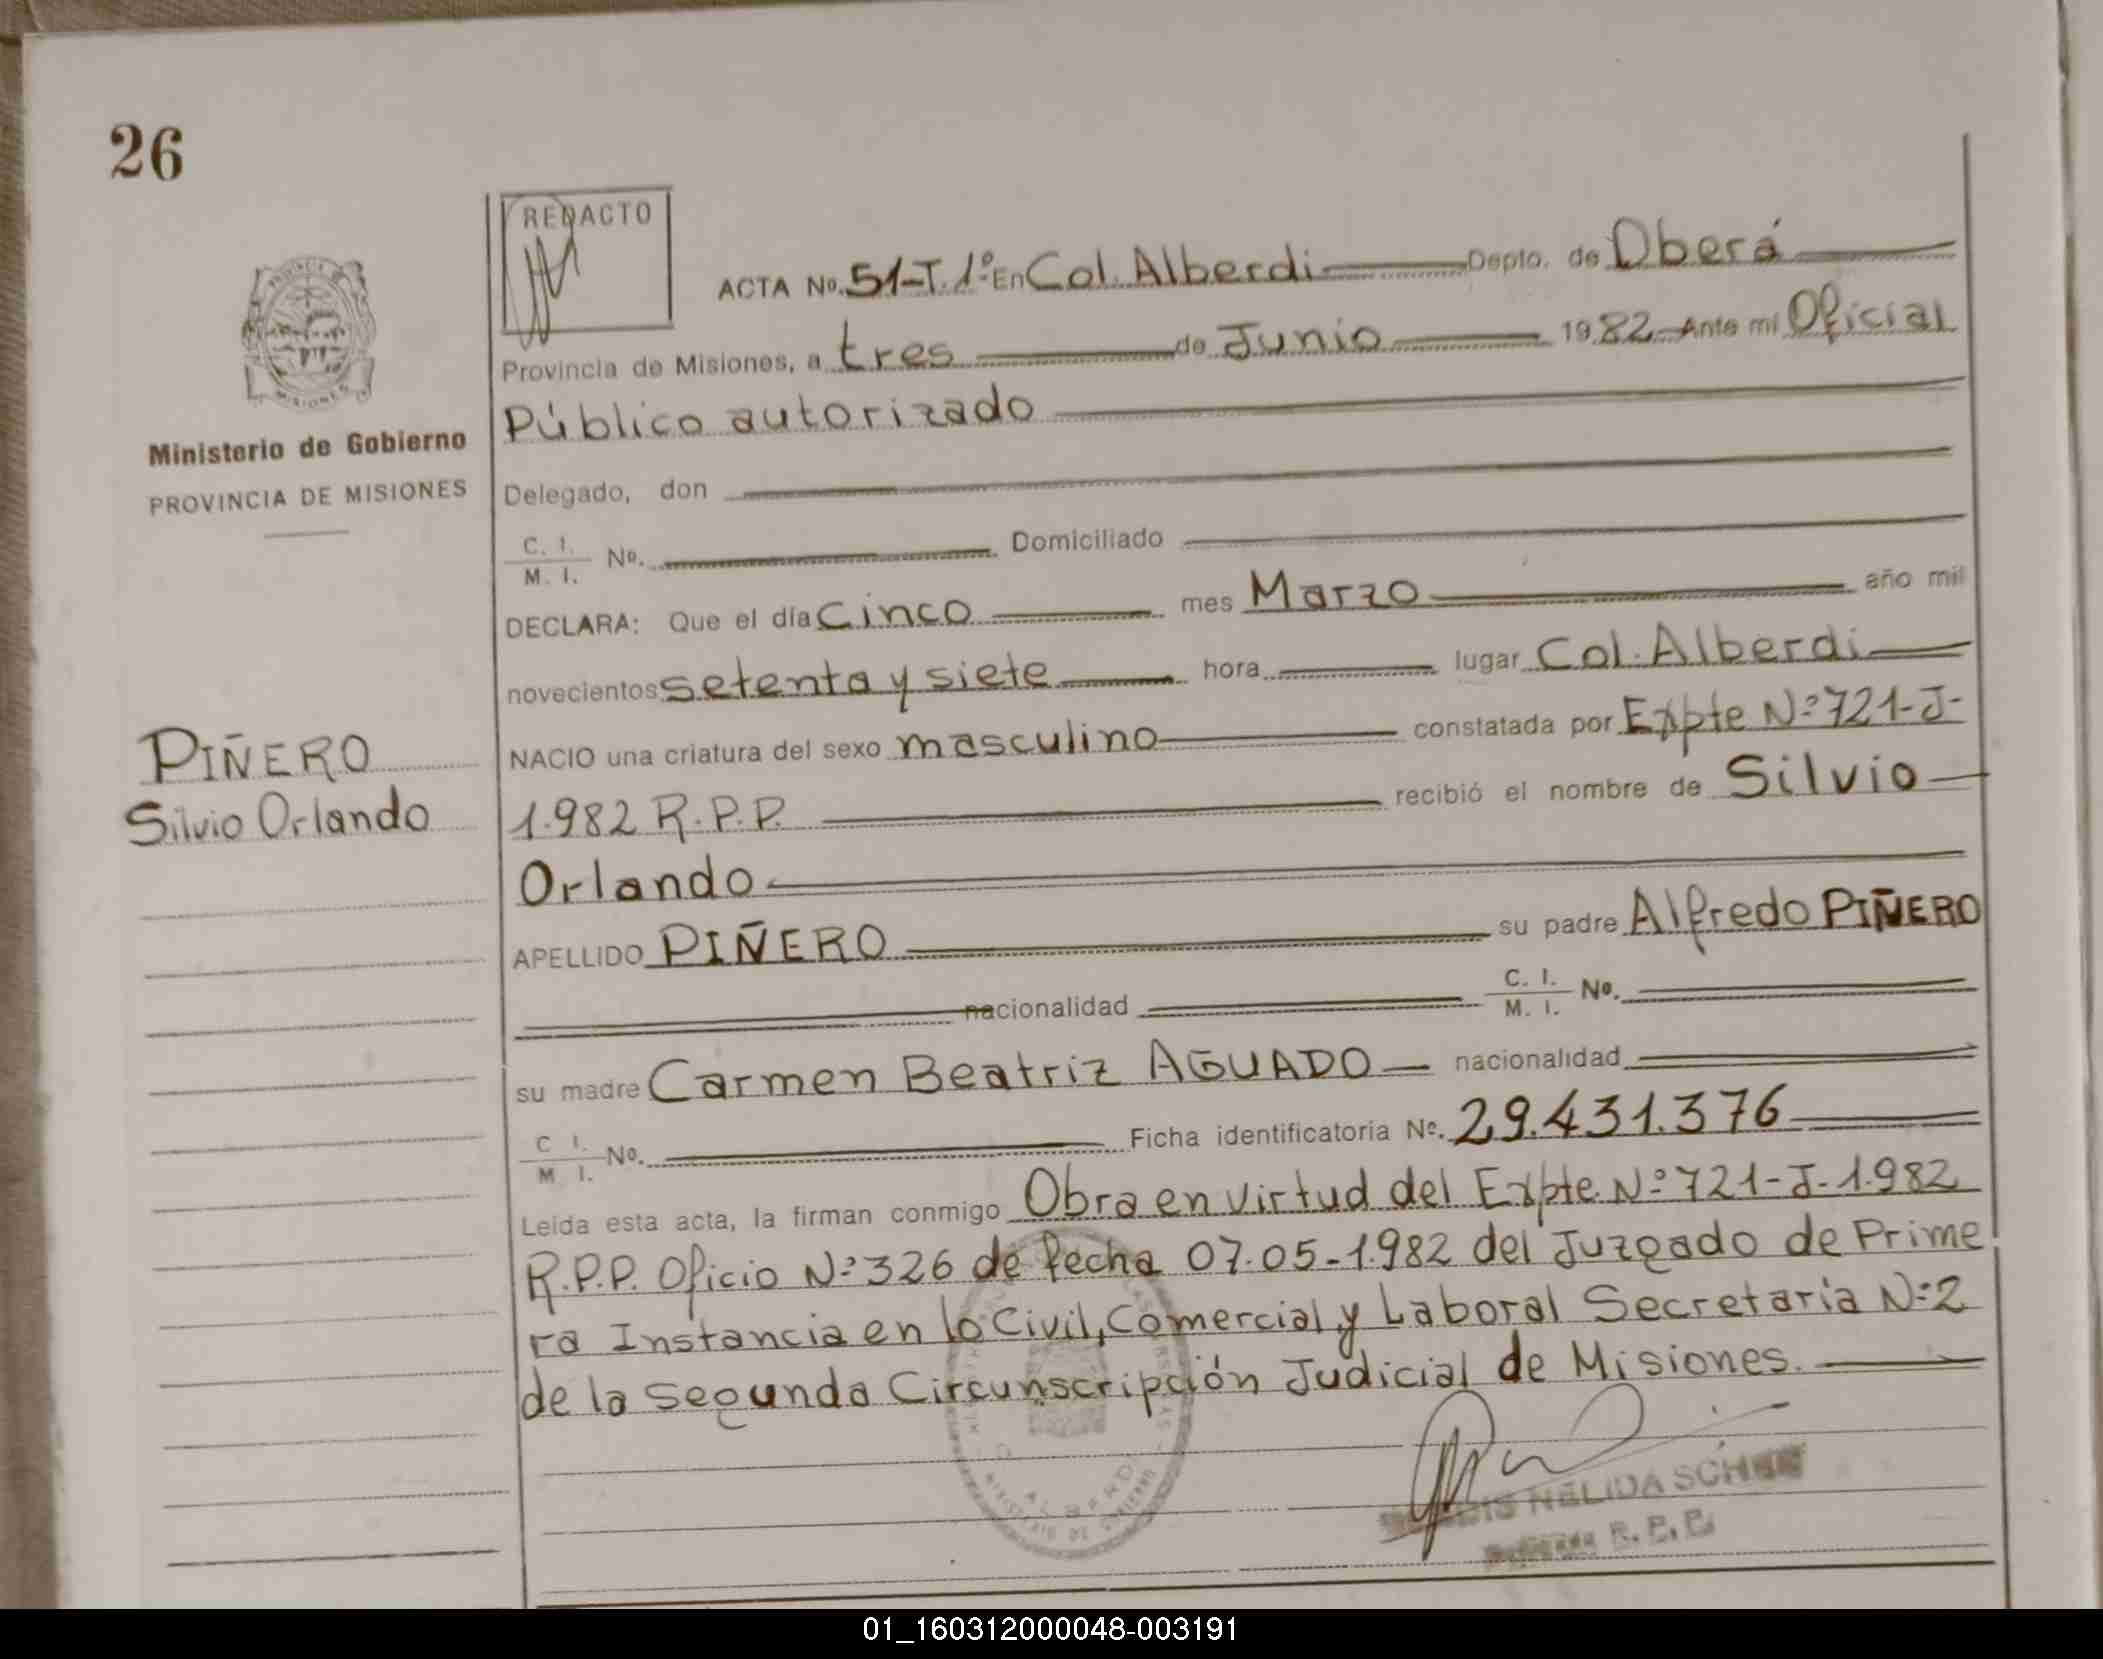 26
REDACTO
ACTA No. 51-T.1º En Col. Alberdi Depto. de Oberá
Provincia de Misiones, a tres de Junio 1982 Ante mi Oficial
Público autorizado
Ministerio de Gobierno
PROVINCIA DE MISIONES
Delegado, don
C. I.
M. I. Nº. Domiciliado
DECLARA: Que el día Cinco mes Marzo año mil
novecientos setenta y siete hora lugar Col. Alberdi
NACIO una criatura del sexo masculino constatada por Expte Nº 721-J-
PIÑERO
Silvio Orlando
1.982 R.P.P. recibió el nombre de Silvio
Orlando
APELLIDO PIÑERO su padre Alfredo PIÑERO
nacionalidad C. I.
M. I. Nº.
su madre Carmen Beatriz AGUADO nacionalidad
C I.
M I. Nº. Ficha identificatoria Nº. 29.431.376
Leida esta acta, la firman conmigo Obra en virtud del Expte. Nº 721-J-1.982
R.P.P. Oficio Nº 326 de fecha 07.05-1.982 del Juzgado de Prime
ra Instancia en lo Civil, Comercial y Laboral Secretaria Nº 2
de la Segunda Circunscripción Judicial de Misiones.
NELIDA
01_160312000048-003191